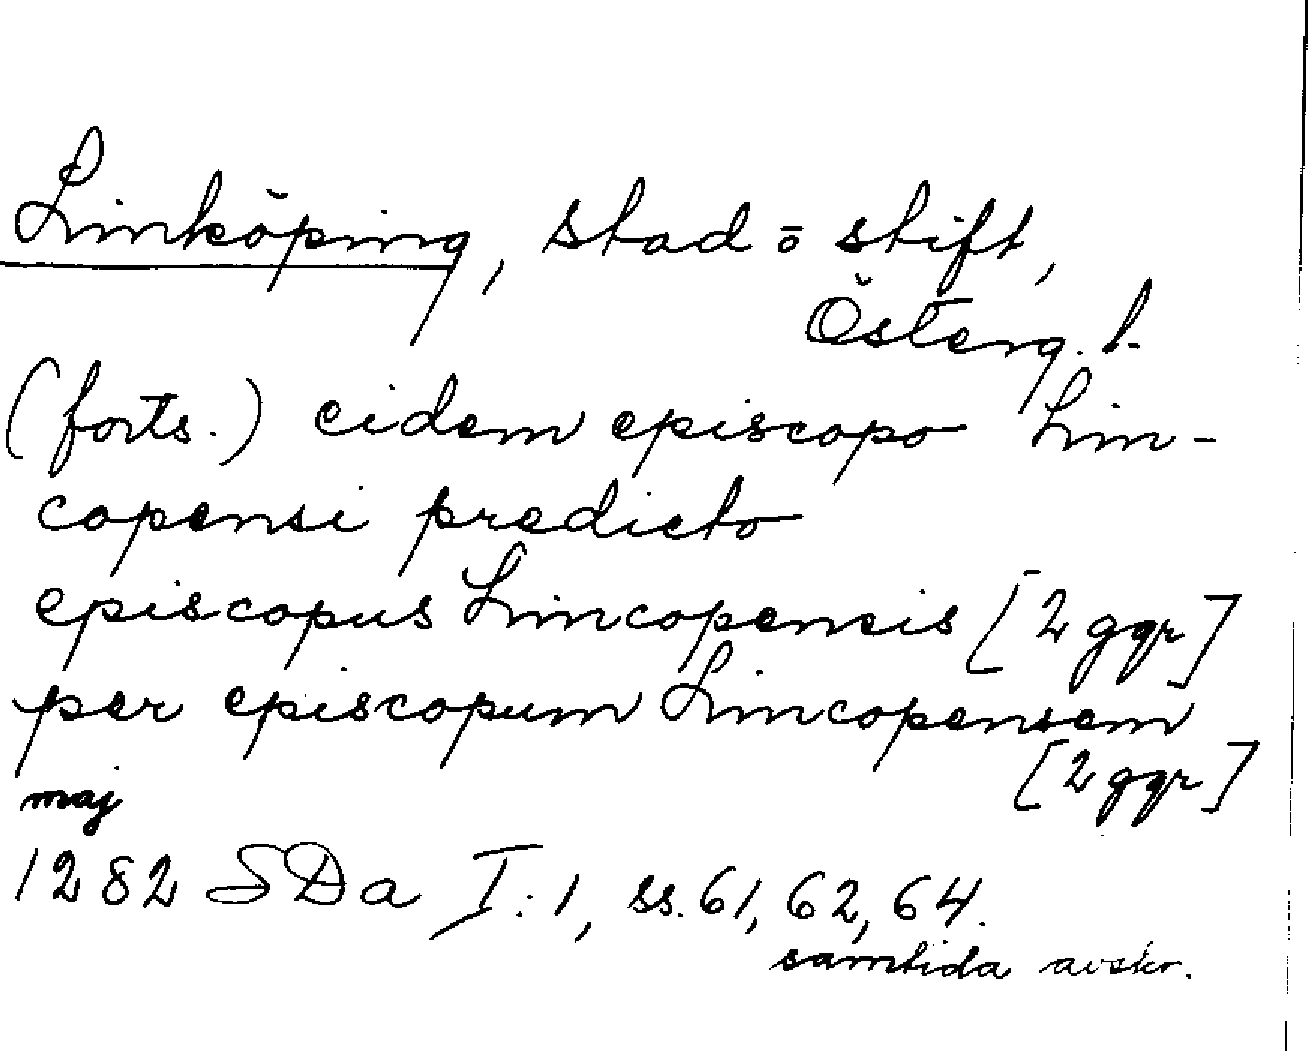 Linköping, stad o stift,
Österg. l.
(forts.) eidem episcopo Lin-
copensi predicto
episcopus Lincopensis [2 ggr]
per episcopum Lincopensem
[2 ggr]
maj
1282 SDa I:1, ss. 61, 62, 64.
samtida avskr.